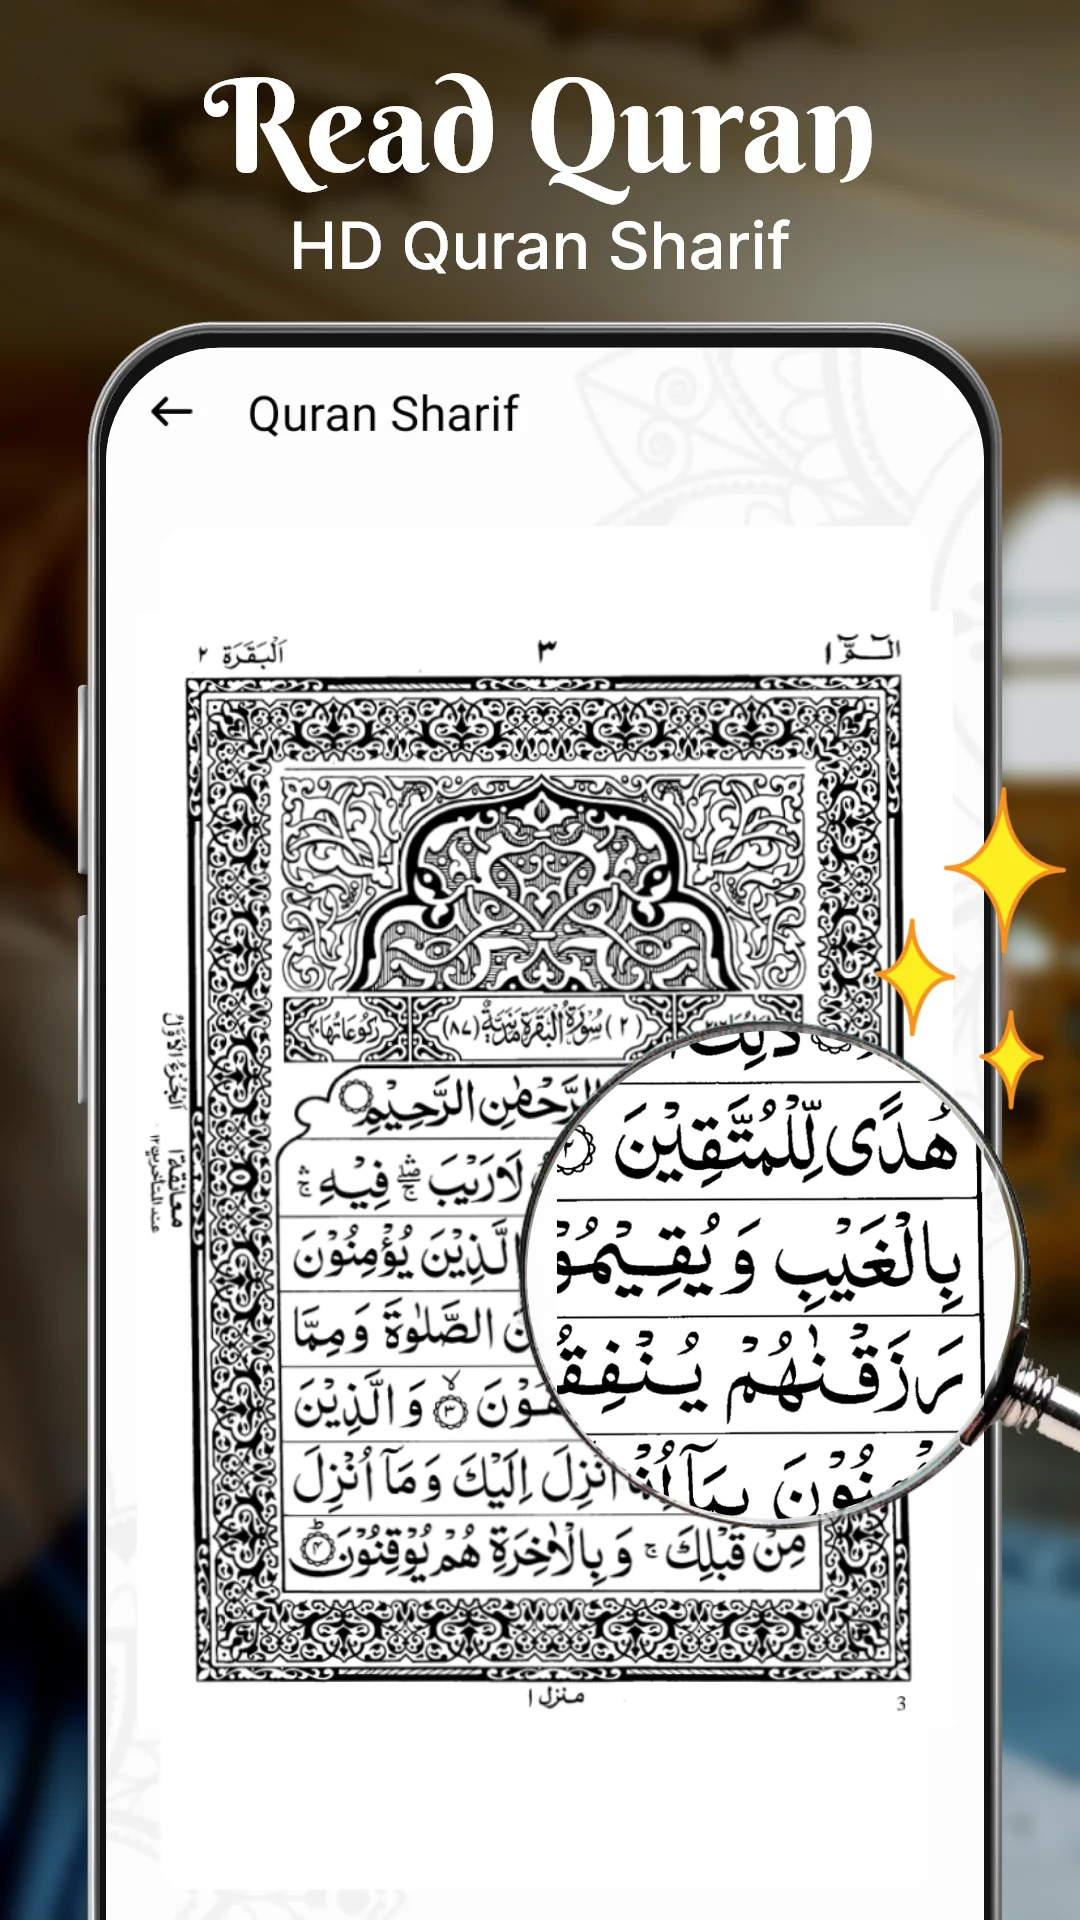 Read Quran
HD Quran Sharif
Quran Sharif
الٓمّٓ ١
٣
اَلْبَقَرَة ٢
(٢) سُوْرَةُ الْبَقَرَةِ مَدَنِيَّةٌ (٨٧)
رُكُوْعَاتُهَا ٤٠
الرَّحْمٰنِ الرَّحِيْمِ
لَارَيْبَ ۛ فِيْهِ ۛ
الَّذِيْنَ يُؤْمِنُوْنَ
الصَّلٰوةَ وَمِمَّا
٣ وَالَّذِيْنَ
اُنْزِلَ اِلَيْكَ وَمَآ اُنْزِلَ
مِنْ قَبْلِكَ ۚ وَبِالْاٰخِرَةِ هُمْ يُوْقِنُوْنَ ٤
ذٰلِكَ
هُدًى لِّلْمُتَّقِيْنَ ٢
بِالْغَيْبِ وَيُقِيْمُو
رَزَقْنٰهُمْ يُنْفِقُ
بِمَآ
اَلْجُزْءُ الْاَوَّلُ
معانقة ١
عند المتاخرين ١٢
منزل ١
3